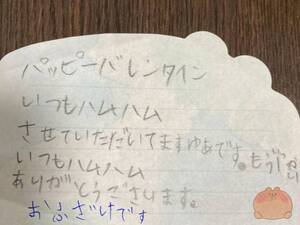 パッピーバレンタイン
いつもハムハム
させていただいてますゆあです。もうﾞ
いつもハムハム
ありがとうございます。
おふざけです